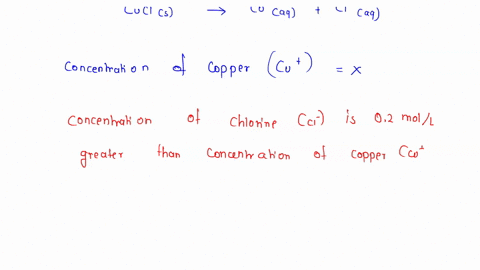 CuCl (s) → Cu (aq) + Cl (aq)
Concentration of Copper (Cu⁺) = x
Concentration of chlorine (Cl⁻) is 0.2 mol/L
greater than concentration of copper (Cu⁺